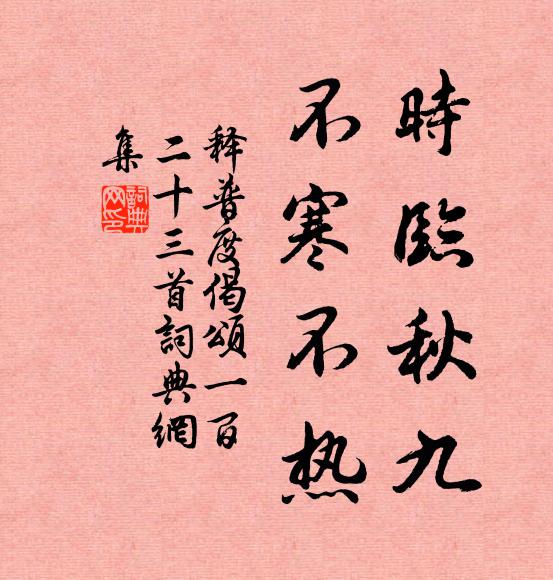 時臨秋九
不寒不热
释普度偈頌一百
二十三首詞典網
集
詞典
网印